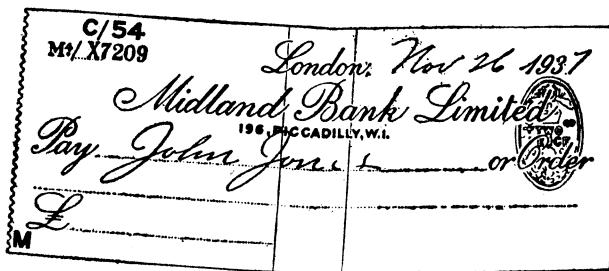 C/54
Mt/ X7209
London, Nov 26 1937
Midland Bank Limited
196, PICCADILLY, W.1.
Pay John Jones or Order
TWO
£
M